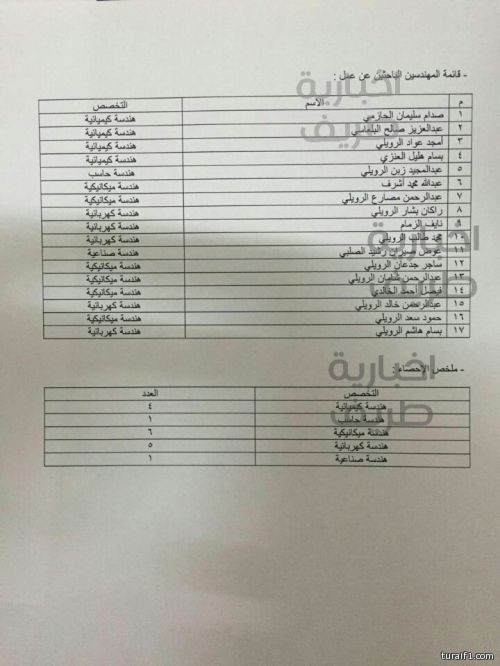 - قائمة المهندسين الباحثين عن عمل :
م الأسم التخصص
١ صدام سليمان الحازمي هندسة كيميائية
٢ عبدالعزيز صالح البلعاسي هندسة كيميائية
٣ أمجد عواد الرويلي هندسة كيميائية
٤ بسام هليل العنزي هندسة كيميائية
٥ عبدالمجيد زبن الرويلي هندسة حاسب
٦ عبدالله محمد أشرف هندسة ميكانيكية
٧ عبدالرحمن مصارع الرويلي هندسة ميكانيكية
٨ راكان بشار الرويلي هندسة كهربائية
٩ نايف الزمام هندسة كهربائية
١٠ محمد طالب الرويلي هندسة كهربائية
١١ عوض صبران رشيد الصلبي هندسة صناعية
١٢ ساجر جدعان الرويلي هندسة ميكانيكية
١٣ عبدالرحمن شامان الرويلي هندسة ميكانيكية
١٤ فيصل أحمد الخالدي هندسة كهربائية
١٥ عبدالرحمن خالد الرويلي هندسة ميكانيكية
١٦ حمود سعد الرويلي هندسة ميكانيكية
١٧ بسام هاشم الرويلي هندسة كهربائية
- ملخص الإحصاء :
التخصص العدد
هندسة كيميائية ٤
هندسة حاسب ١
هندسة ميكانيكية ٦
هندسة كهربائية ٥
هندسة صناعية ١
اخبارية
طريف
اخبارية
طريف
اخبارية
طريف
turaif1.com